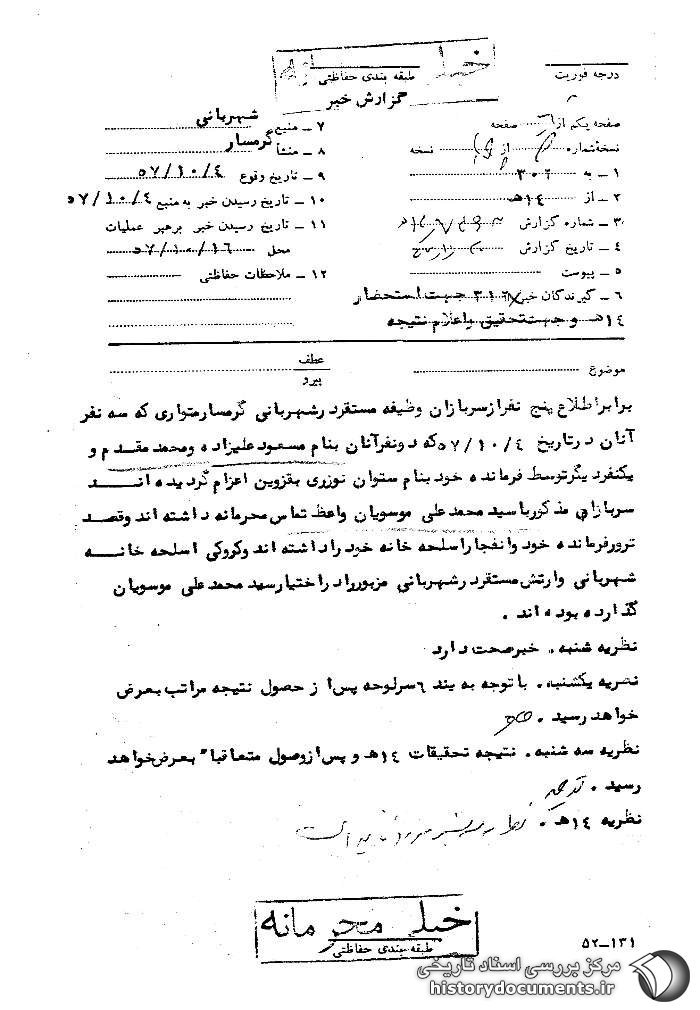 خیلی محرمانه
طبقه بندی حفاظتی
درجه فوریت
گزارش خبر
صفحه یکم از صفحه
نسخه شماره از نسخه
۱ ـ به ۳۰۲
۲ ـ از ۱۴هـ
۳ ـ شماره گزارش
۴ ـ تاریخ گزارش
۵ ـ پیوست
۶ ـ گیرندگان خبر ۳۱۲ جهت استحضار
۱۴هـ و جهت تحقیق و اعلام نتیجه
۷ ـ منبع شهربانی
۸ ـ منشأ گرمسار
۹ ـ تاریخ وقوع ۵۷/۱۰/۴
۱۰ ـ تاریخ رسیدن خبر به منبع ۵۷/۱۰/۴
۱۱ ـ تاریخ رسیدن خبر برهبر عملیات
محل ۵۷/۱۰/۱۶
۱۲ ـ ملاحظات حفاظتی
موضوع
عطف
پیرو
برابر اطلاع پنج نفر از سربازان وظیفه مستقر در شهربانی گرمسار متواری که سه نفر
آنان در تاریخ ۵۷/۱۰/۴ که دو نفر آنان بنام مسعود علیزاده و محمد مقدم و
یکنفر دیگر توسط فرمانده خود بنام ستوان نوزری بقزوین اعزام گردیده اند
سربازان مذکور با سید محمد علی موسویان واعظ تماس محرمانه داشته اند و قصد
ترور فرمانده خود و انفجار اسلحه خانه خود را داشته اند و کروکی اسلحه خانه
شهربانی و ارتش مستقر در شهربانی مزبور را در اختیار سید محمد علی موسویان
گذارده بوده اند .
نظریه شنبه. خبر صحت دارد
نظریه یکشنبه. با توجه به بند ۶ سرلوحه پس از حصول نتیجه مراتب بعرض
خواهد رسید .
نظریه سه شنبه. نتیجه تحقیقات ۱۴هـ و پس از وصول متعاقباً بعرض خواهد
رسید .
نظریه ۱۴هـ. است
خیلی محرمانه
طبقه بندی حفاظتی
۵۲-۱۳۱
مرکز بررسی اسناد تاریخی
historydocuments.ir